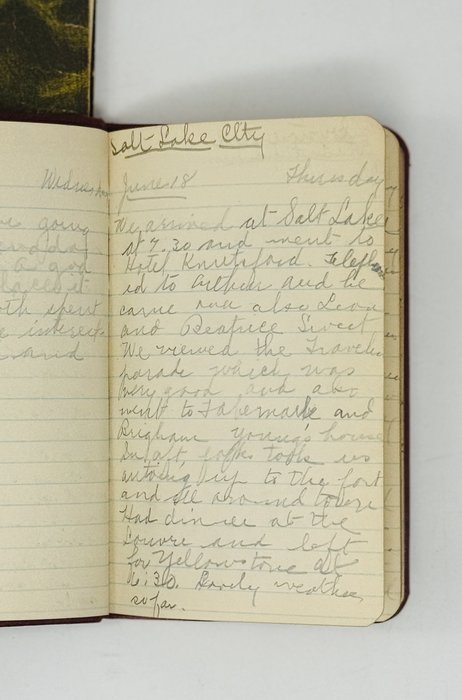 Wednes
going
a good
both spent
and
Salt Lake City
June 18 Thursday
We arrived at Salt Lake
at 7.30 and went to
Hotel Knutsford. Teleph
ed to Arthur and he
came and also Leon
and Beatrice Sweet
We viewed the Travelers
parade which was
very good and also
went to Tabernacle and
Brigham Young's house
In aft. took us
autoing up to the fort
and all around town
Had dinner at the
Louvre and left
for Yellowstone at
6:30. Lovely weather
so far.